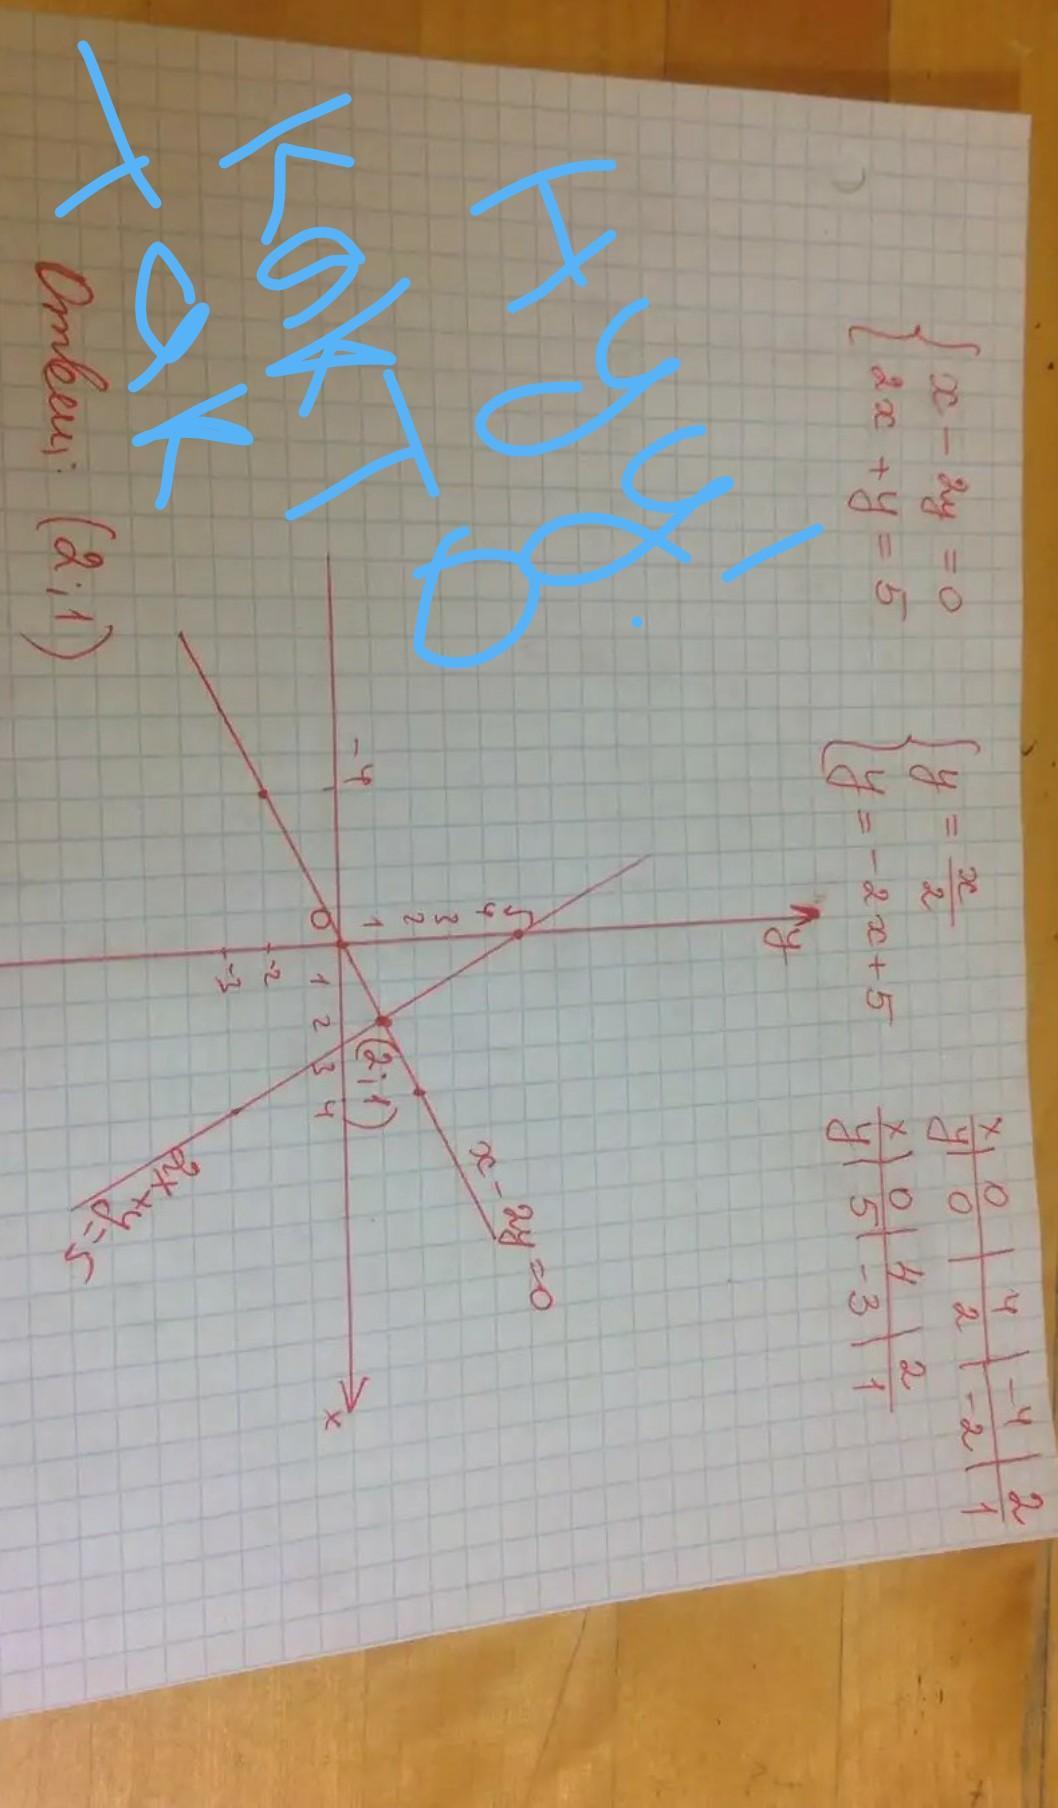 { x - 2y = 0
2x + y = 5
{ y = x/2
y = -2x + 5
x | 0 | 4 | -4 | 2
y | 0 | 2 | -2 | 1
x | 0 | 4 | 2
y | 5 | -3 | 1
Нууу!
как то
так
y
5
4
3
2
1
-4
0
1
2
3
4
x
-2
-3
(2;1)
x - 2y = 0
2x + y = 5
Ответ: (2;1)